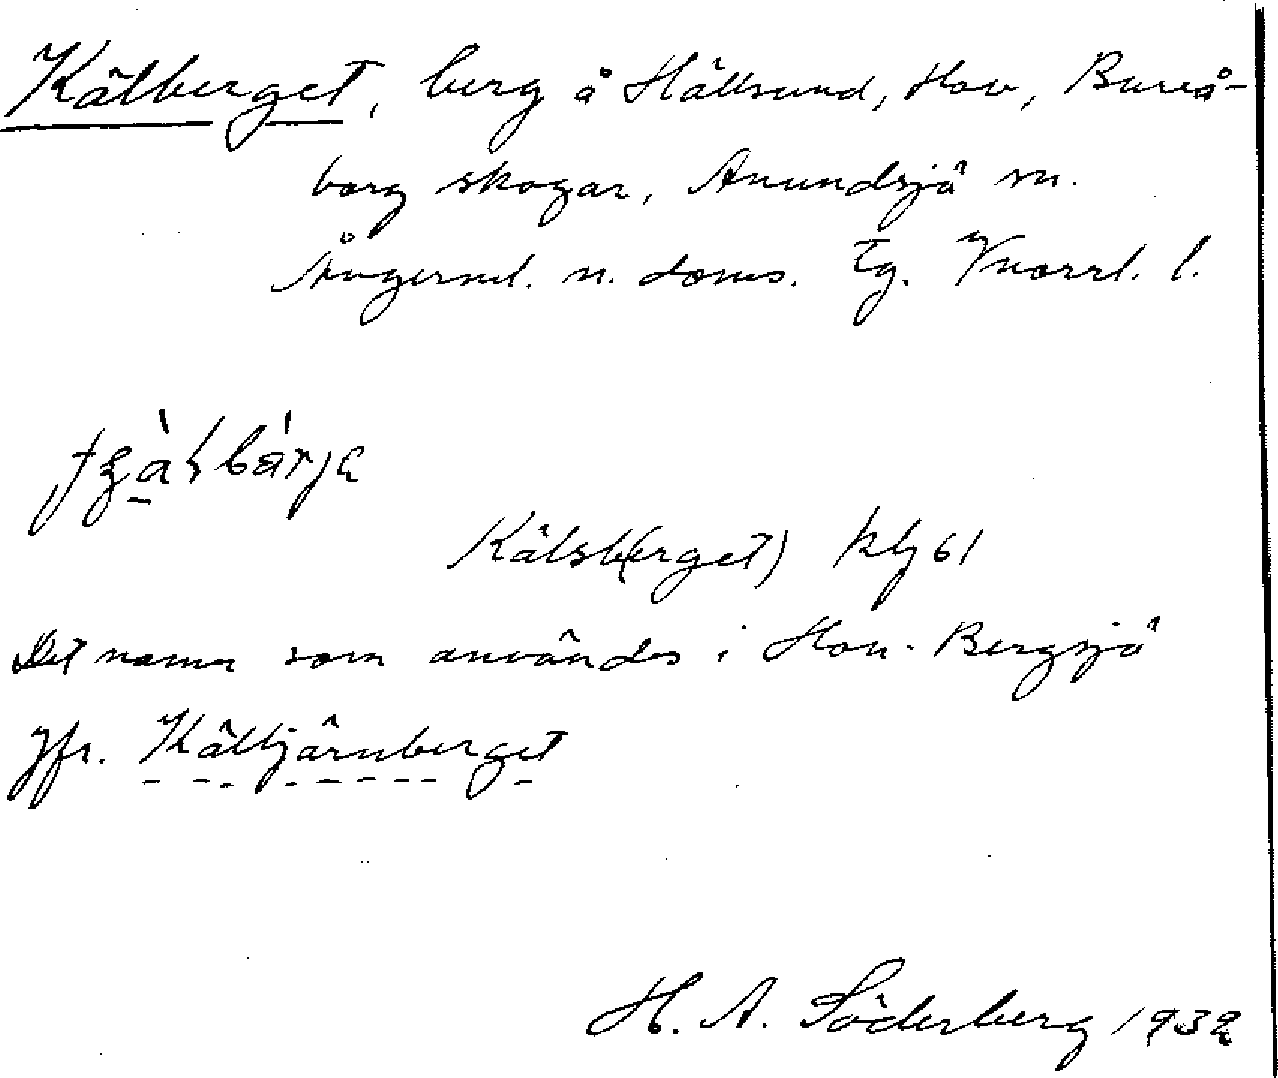 Kälberget, berg å Hällsund, Hov, Bureå-
borg skogar, Anundsjö sn.
Ångerml. n. doms. tg. Vnorrl. l.
Kälsb(erget) klj 61
Det namn som användes i Hov - Bergsjö
Jfr. Kältjärnberget
H. A. Söderberg 1932